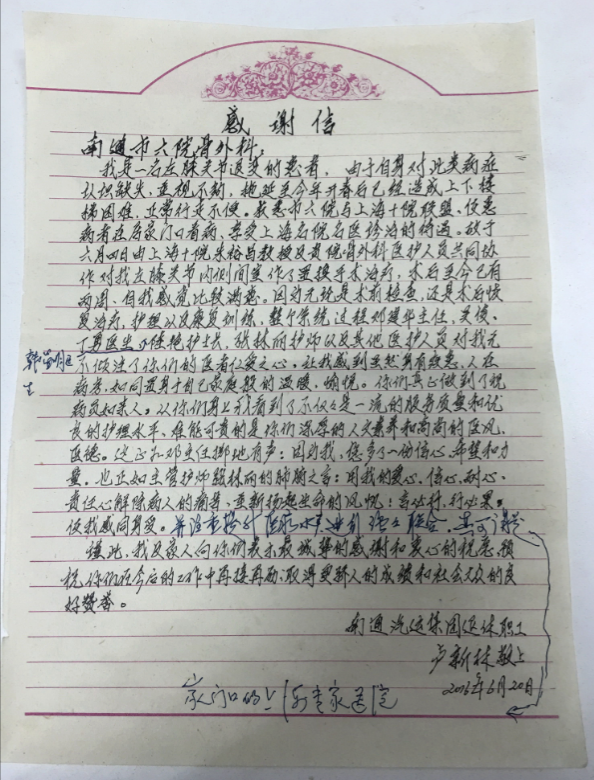 感谢信
南通市六院骨外科:
我是一名左膝关节退变的患者,由于自身对此类病症
认识缺失,重视不够,拖延至今年开春后已经造成上下楼
梯困难,正常行走不便。获悉市六院与上海十院联盟、使患
病者在居家门口看病、享受上海名院名医诊治的待遇。故于
六月四日由上海十院朱裕昌教授及贵院骨外科医护人员共同协
作对我左膝关节内侧间室作了置换手术治疗,术后至今已有
两周、自我感觉比较满意。因为无论是术前检查,还是术后恢
复治疗,护理以及康复训练,整个系统过程邓建华主任,吴俊、
丁勇医生、任艳护士长,张林丽护师以及其他医护人员对我无
不倾注了你们的医者仁爱之心。让我感到虽然身有疾患,人在
病房,如同置身于自己家庭般的温暖,愉悦。你们真正做到了视
病员如亲人。从你们身上我看到了不仅仅是一流的服务质量和优
良的护理水平、难能可贵的是你们深厚的人文素养和高尚的医风、
医德。这正如邓主任掷地有声:因为我,您多了一份信心、希望和力
量。也正如主管护师张林丽的肺腑之言:用我的爱心、信心、耐心、
责任心解除病人的痛苦、重新扬起生命的风帆;言必行,行必果。
使我感同身受。
谨此,我及家人向你们表示最诚挚的感谢和衷心的祝愿,预
祝你们在今后的工作中再接再励、取得更骄人的成绩和社会大众的良
好赞誉。
南通汽运集团退休职工
卢新林敬上
2016年6月20日
家门口的上
专家医院